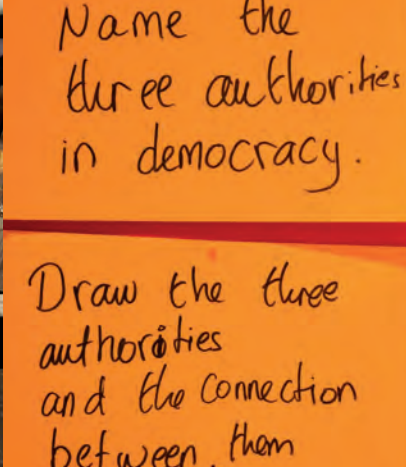 Name the
three authorities
in democracy.
Draw the three
authorities
and the connection
between them